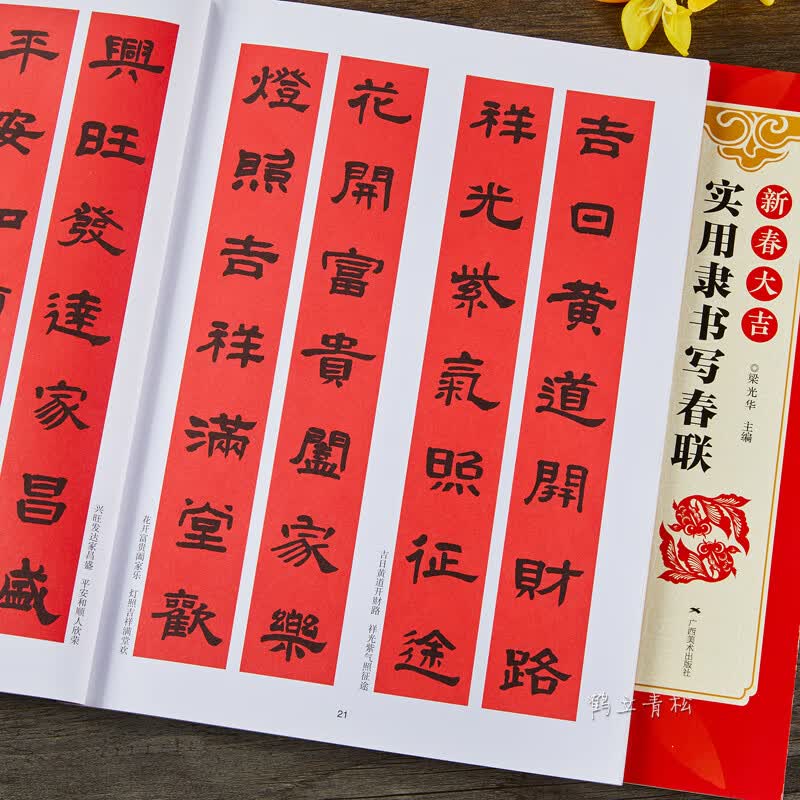 吉日黄道開財路
祥光紫氣照征途
吉日黄道开财路 祥光紫气照征途
花開富貴闔家樂
燈照吉祥滿堂歡
花开富贵阖家乐 灯照吉祥满堂欢
興旺發達家昌盛
平安和順
盛
兴旺发达家昌盛 平安和顺人欣荣
21
新春大吉
实用隶书写春联
◎梁光华 主编
广西美术出版社
鹤立青松